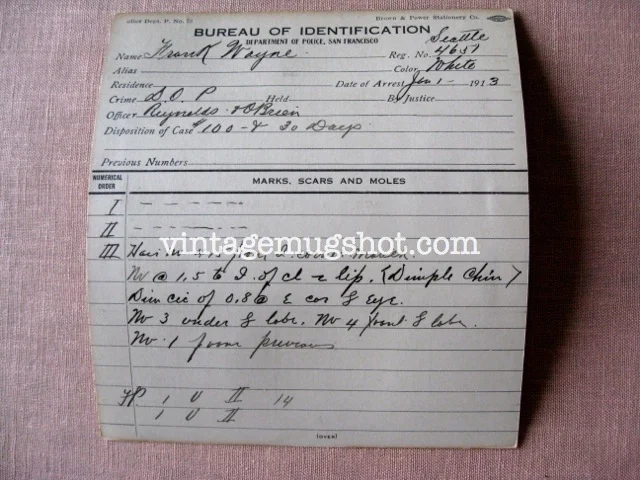 olice Dept. P. No. 59 Brown & Power Stationery Co.
BUREAU OF IDENTIFICATION
DEPARTMENT OF POLICE, SAN FRANCISCO Seattle
Name Frank Wayne Reg. No. 4651
Alias Color White
Residence Date of Arrest Jan 1 - 1913
Crime D.O.P Held By Justice
Officer Reynolds & OBrien
Disposition of Case $100 - & 30 Days
Previous Numbers
NUMERICAL ORDER MARKS, SCARS AND MOLES
I - - - - - -
II - - - - - -
III Hair in
vintagemugshot.com
Nv @ 1.5 to I. of cl - c lip. (Dimple Chin)
Dim cic of 0.8 @ E cor L Eye.
Nv 3 under L lobe. Nv 4 front L lobe.
Nv. 1 from previous
FP 1 U II 14
1 U II
(OVER)